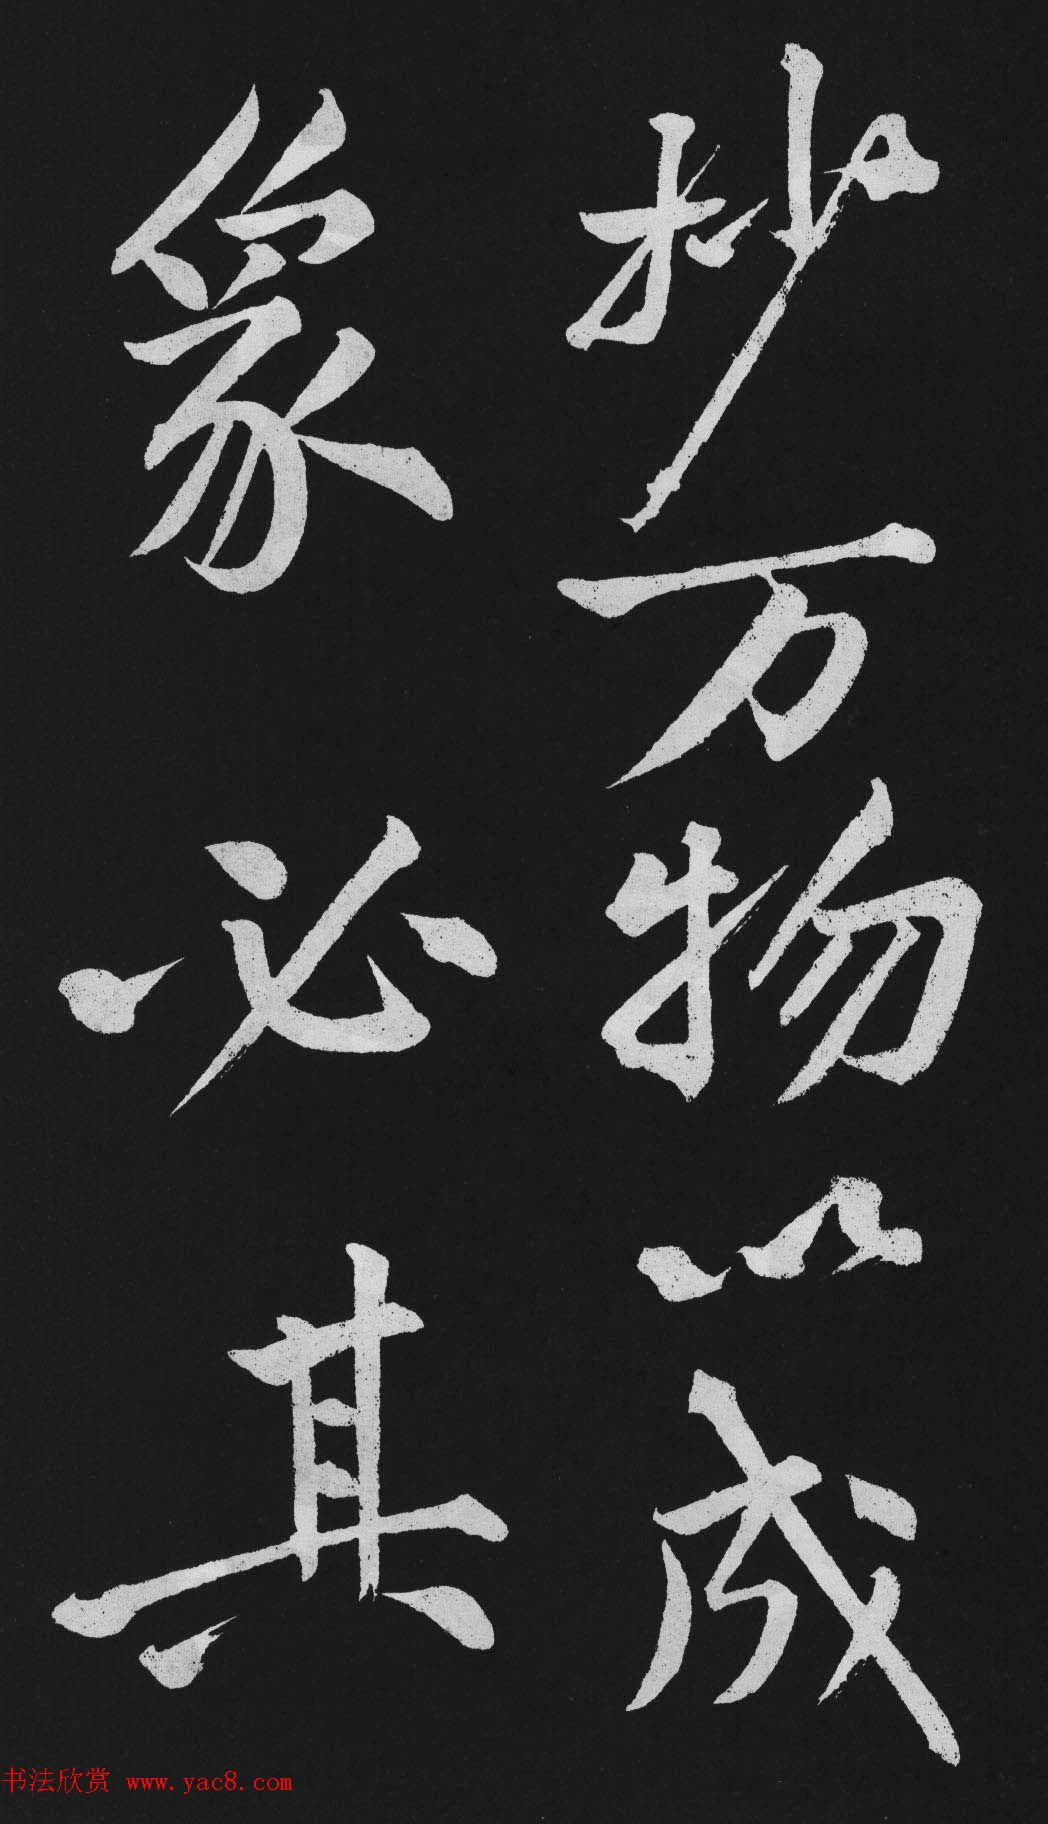 抄万物以成
篆必其
书法欣赏 www.yac8.com